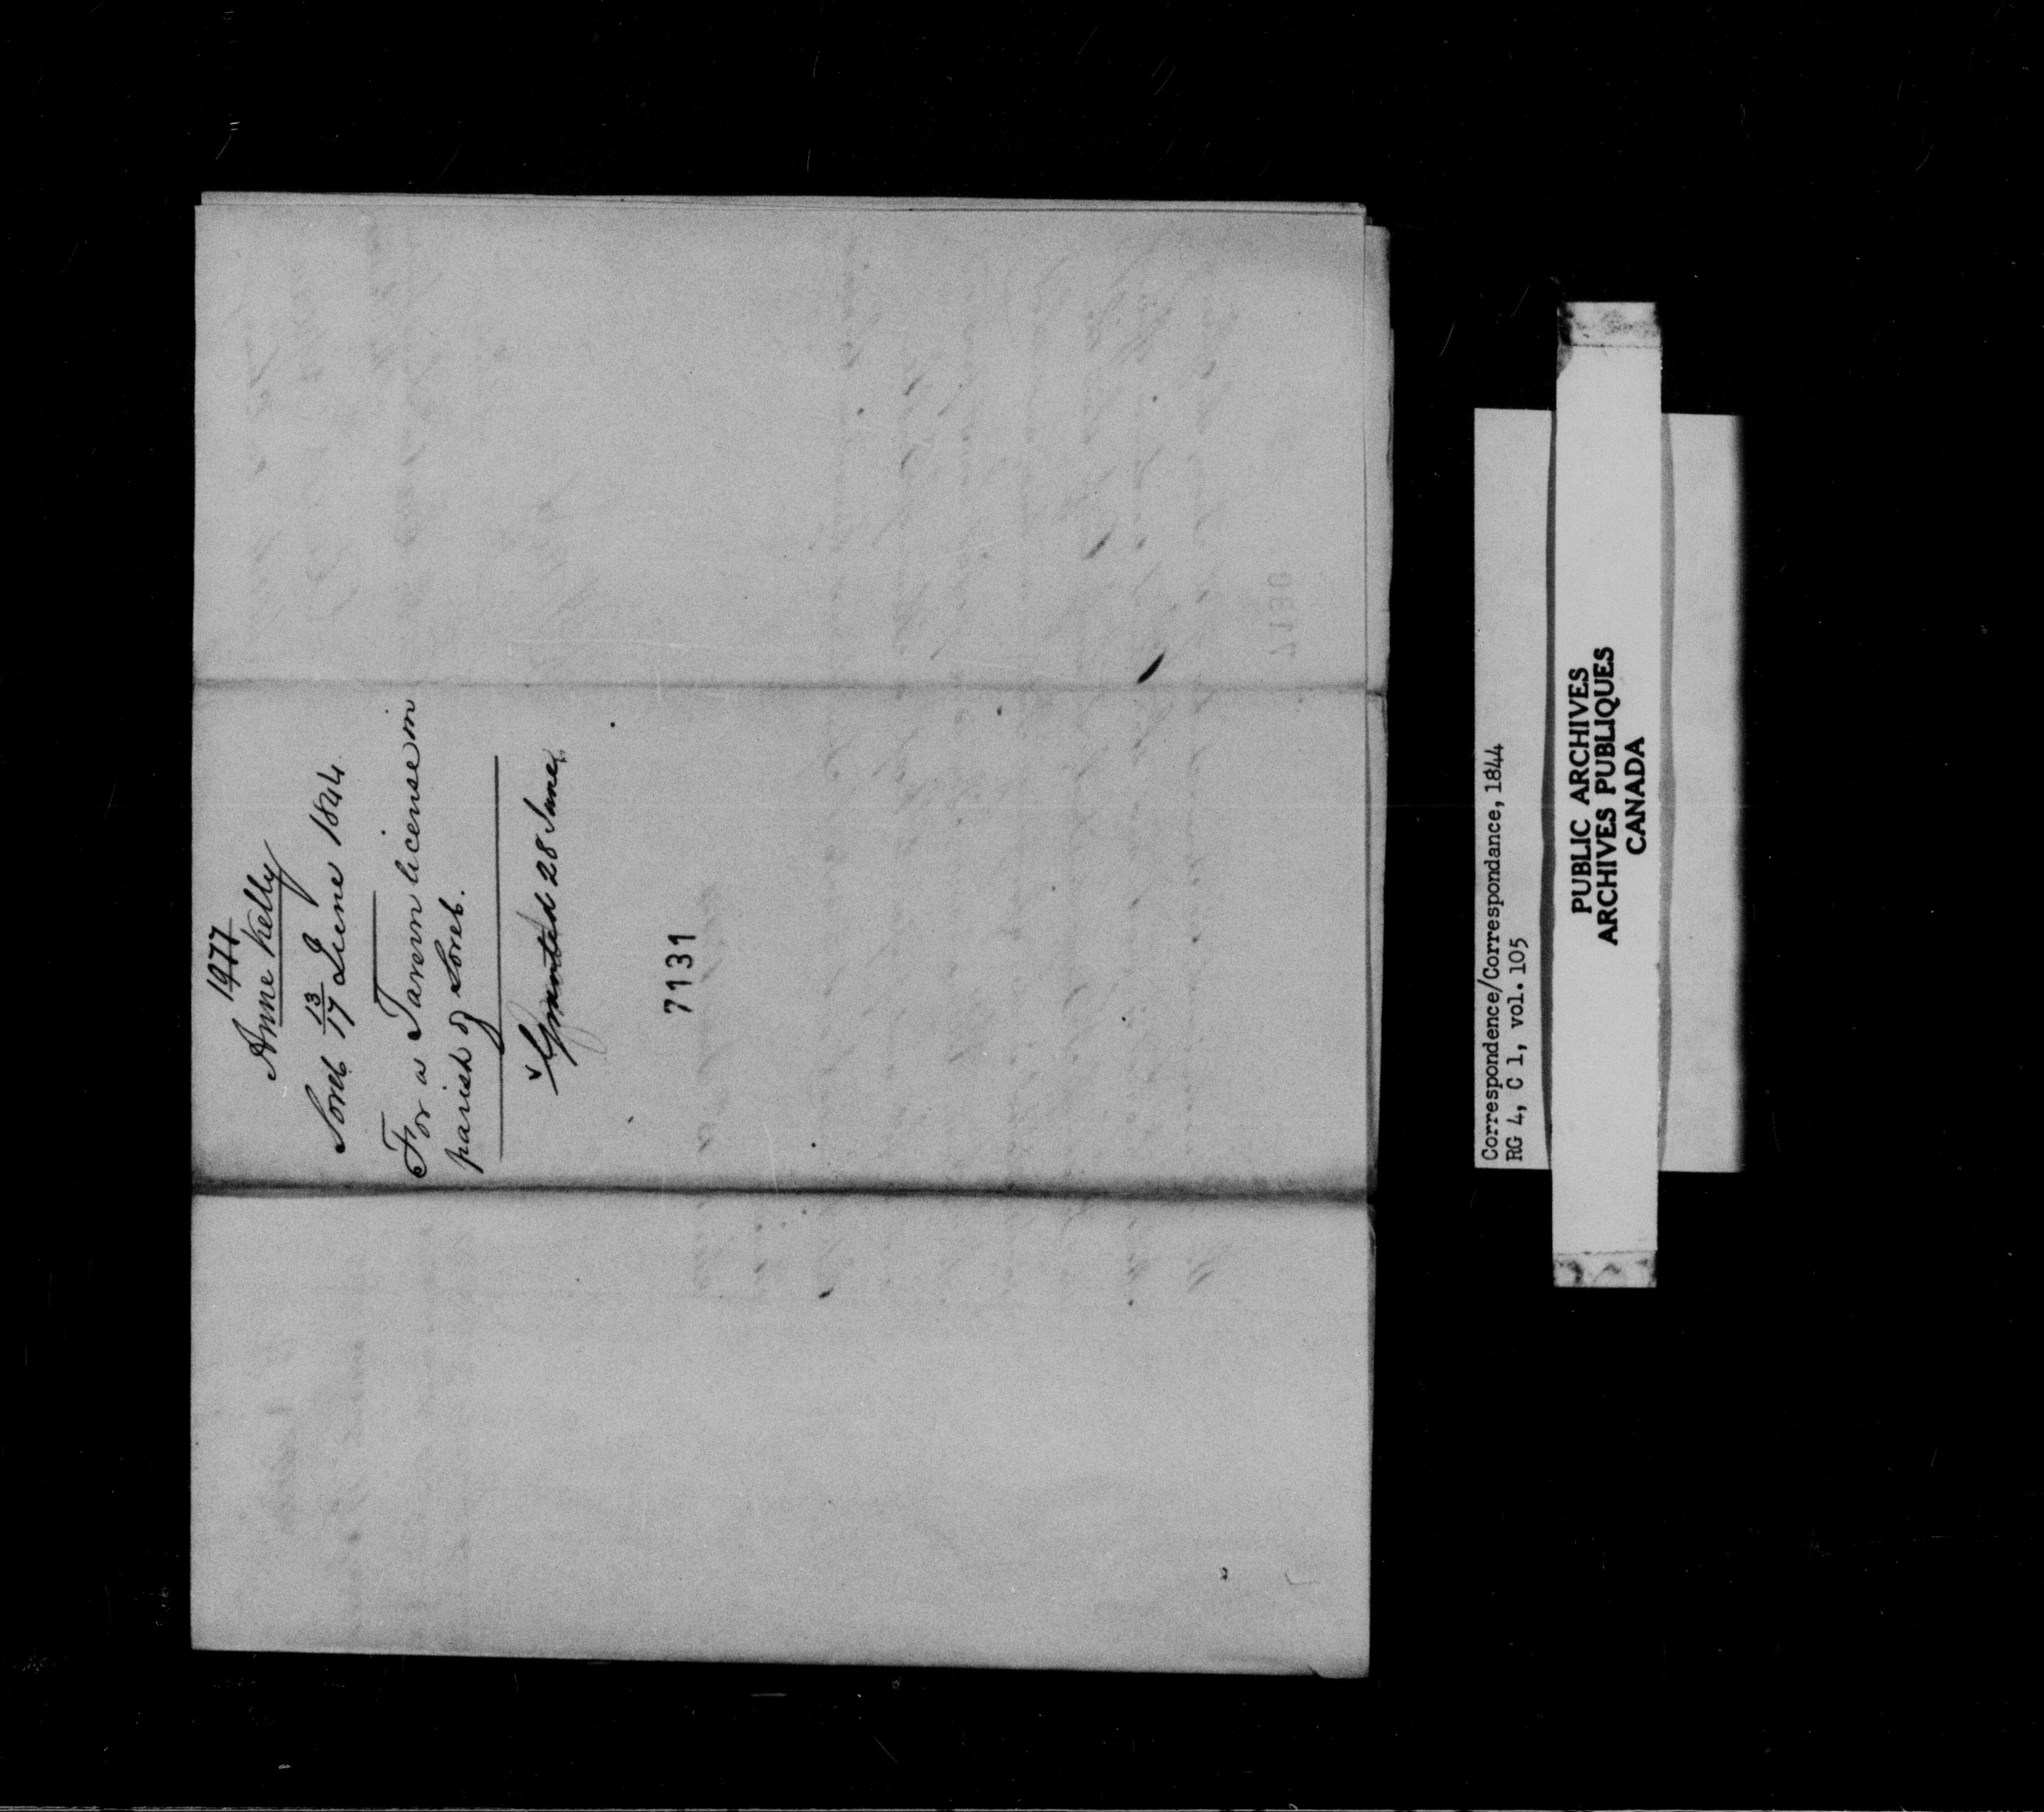 1977
Anne Kelly
Sorel 13/17 June 1844
For a Tavern license in
parish of Sorel.
Granted 28 June
7131
Correspondence/Correspondance, 1844
RG 4, C 1, vol. 105
PUBLIC ARCHIVES
ARCHIVES PUBLIQUES
CANADA
7130